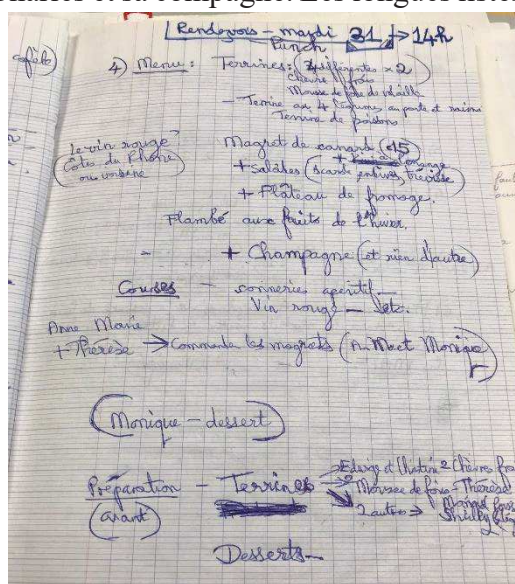 et sa compagne. Les longues listes
Rendezvous - mardi 31 → 14h
Punch
4) Menu: Terrines: (4 différentes x 2)
chèvre frais
Mousse de foie de volaille
- Terrine aux 4 légumes au porto et raisins
Terrine de poissons
Le vin rouge?
(Côtes du Rhône
ou
Magret de canard (15)
+ orange
+ Salades (scarole endives, Trévise)
+ Plâteau de fromage.
Flambé aux fruits de l'hiver.
- + Champagne (et rien d'autre)
Courses - connerie aperitif -
Vin rouge - etc.
Anne Marie
+ Thérèse → Commander les magrets (A. M et Monique)
(Monique - dessert)
Préparation - Terrines → Edwige et 2 Chèvres
→ Mousse de foies - Thérèse
(avant)
2 autres →
Desserts -